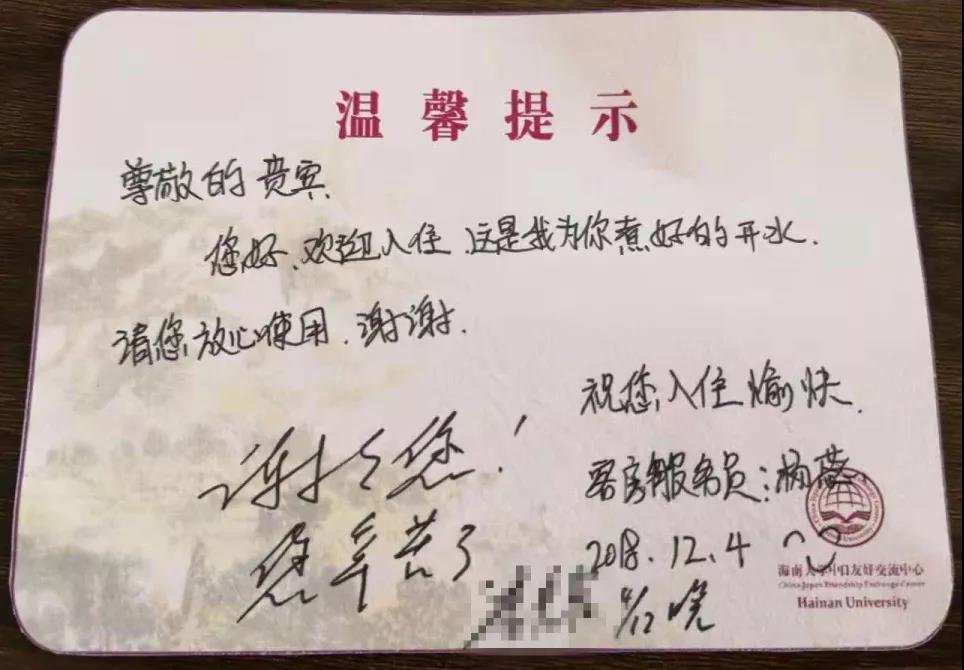 温馨提示
尊敬的贵宾
您好、欢迎入住.这是我为你煮好的开水.
请您放心使用.谢谢.
祝您入住愉快.
客房服务员:杨
2018.12.4
谢谢您!
您辛苦了
4/12晚
海南大学中日友好交流中心
China-Japan Friendship Exchange Center
Hainan University